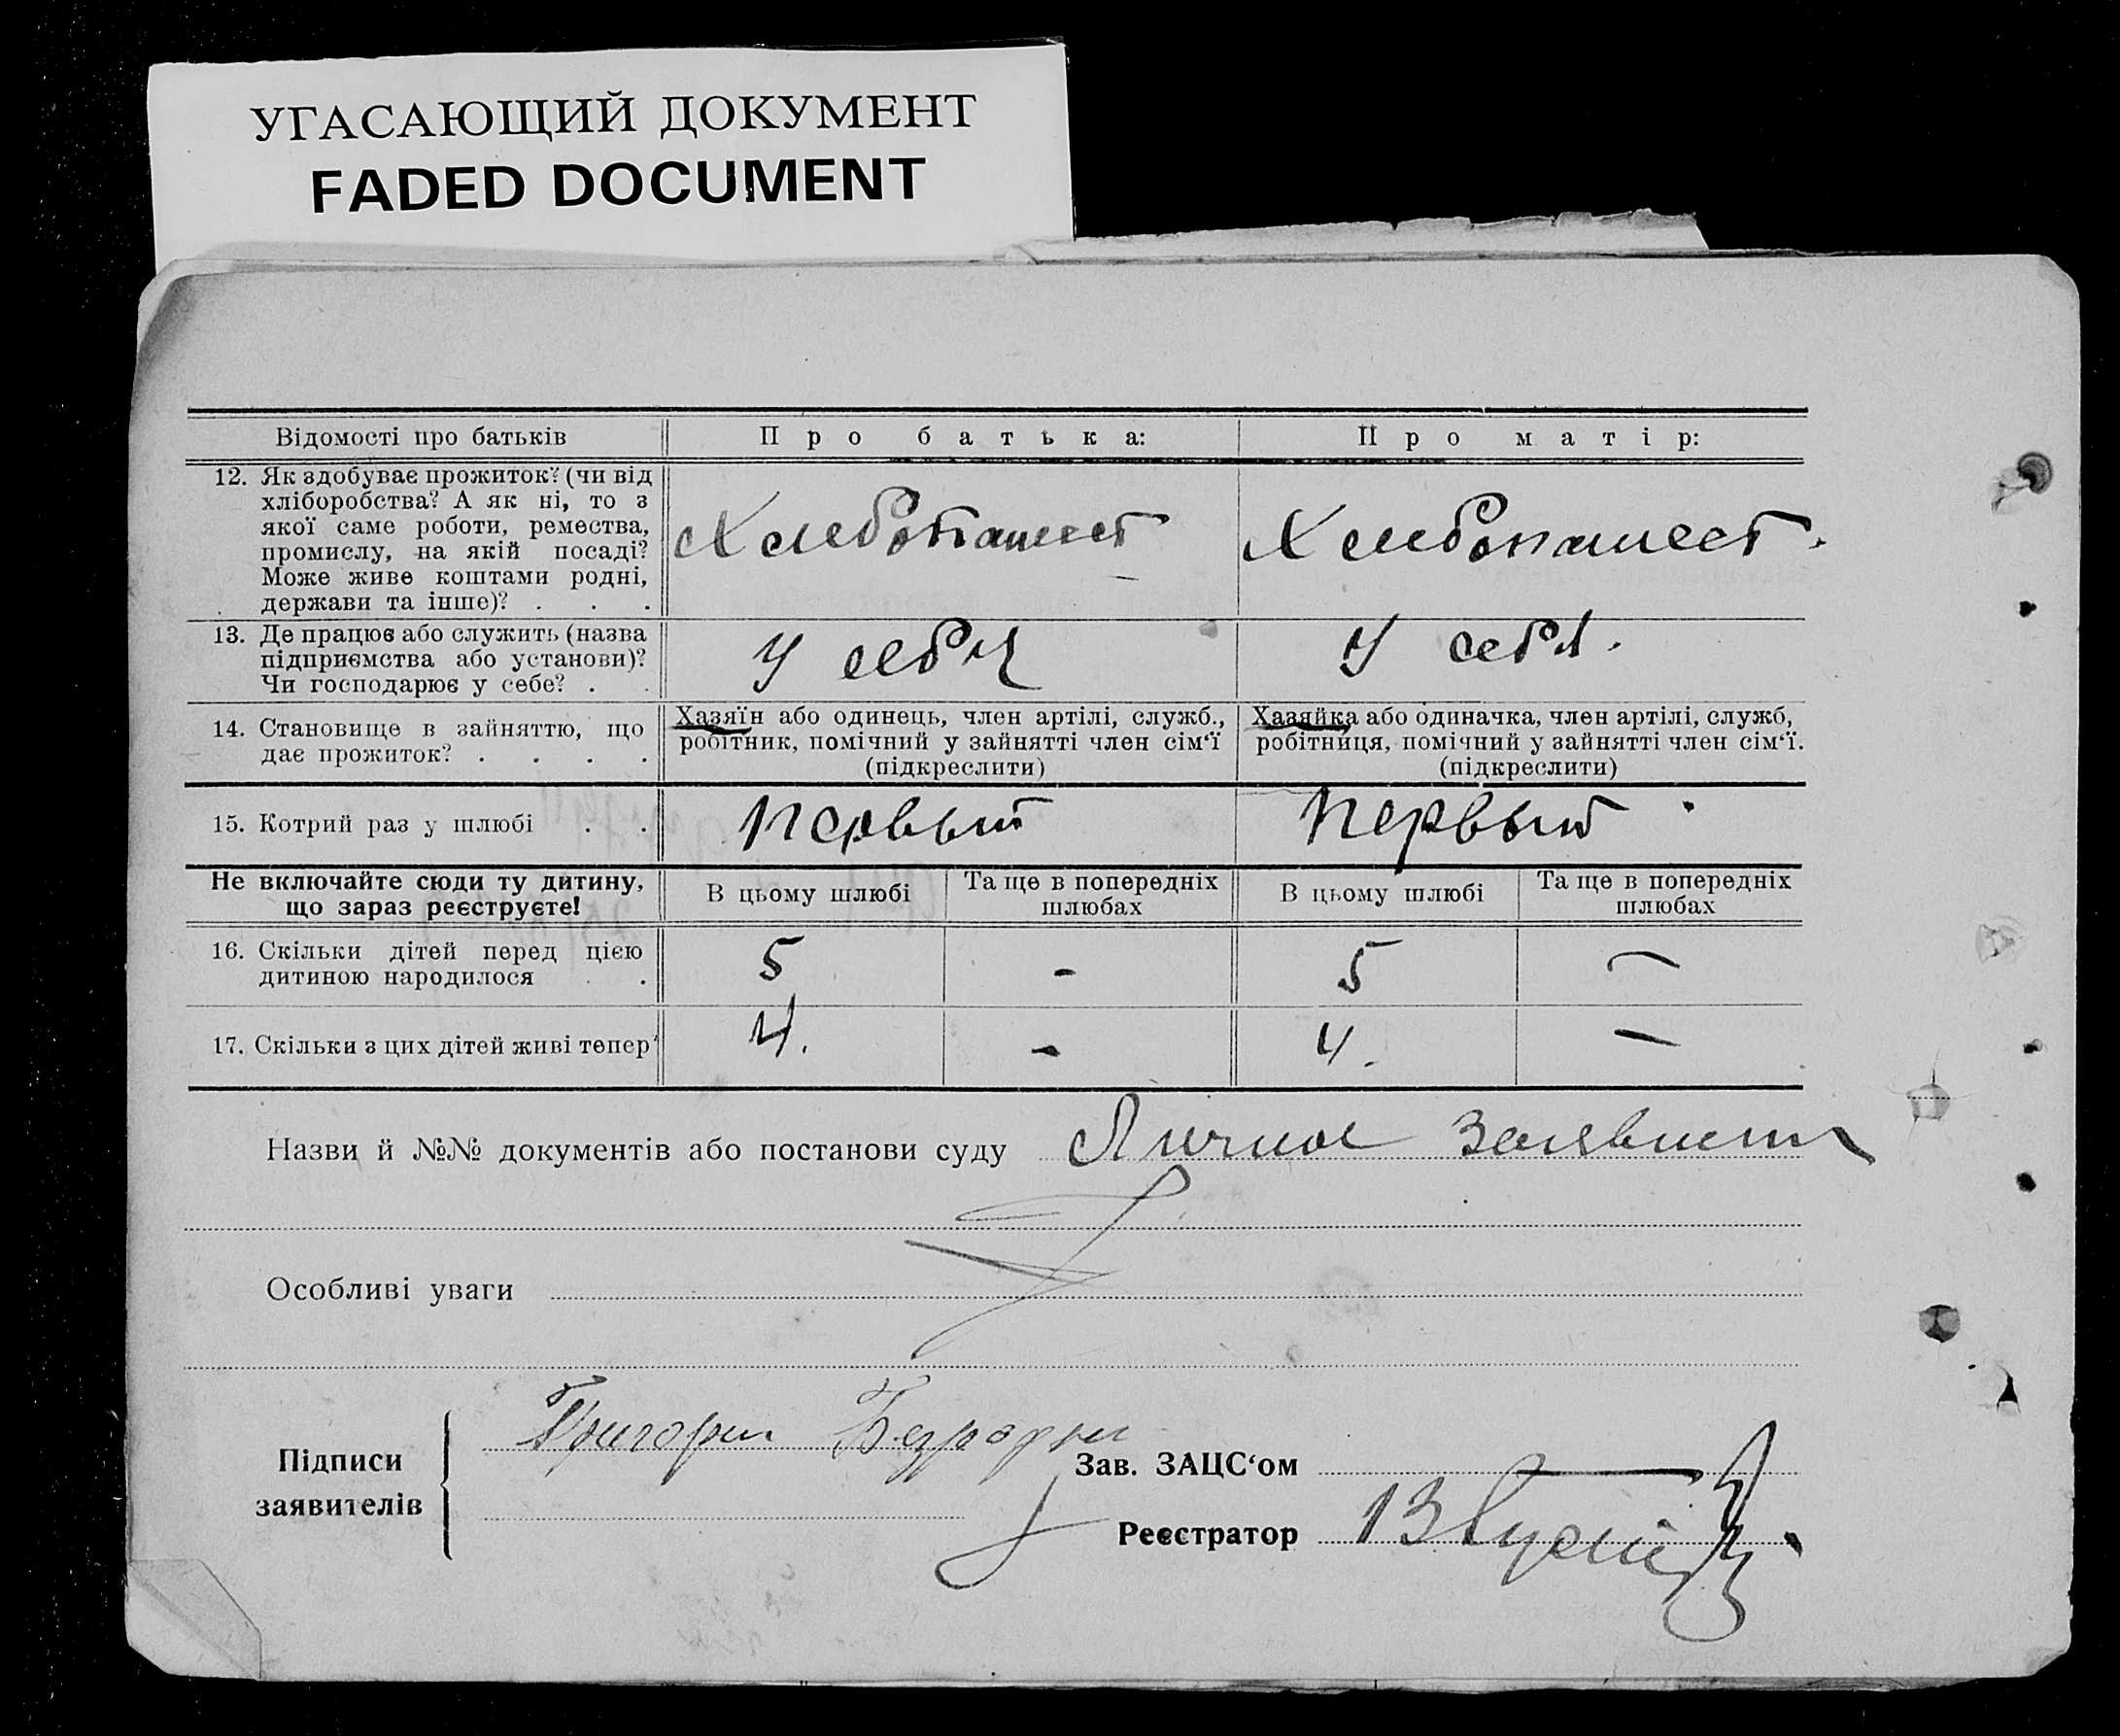 УГАСАЮЩИЙ ДОКУМЕНТ
FADED DOCUMENT
Відомості про батьків
Про батька:
Про матір:
12. Як здобуває прожиток? (чи від
хліборобства? А як ні, то з
якої саме роботи, ремества,
промислу, на якій посаді?
Може живе коштами родні,
держави та інше)? . . .
Хлебопашест
Хлебопашест.
13. Де працює або служить (назва
підприємства або установи)?
Чи господарює у себе? . .
У себя
У себя.
14. Становище в зайняттю, що
дає прожиток? . . . .
Хазяїн або одинець, член артілі, служб.,
робітник, помічний у зайнятті член сім‘ї
(підкреслити)
Хазяйка або одиначка, член артілі, служб,
робітниця, помічний у зайнятті член сім‘ї.
(підкреслити)
15. Котрий раз у шлюбі . .
Первый
Первый
Не включайте сюди ту дитину,
що зараз реєструєте!
В цьому шлюбі
Та ще в попередніх
шлюбах
В цьому шлюбі
Та ще в попередніх
шлюбах
16. Скільки дітей перед цією
дитиною народилося . .
5
-
5
—
17. Скільки з цих дітей живі тепер
4.
-
4.
—
Назви й №№ документів або постанови суду Личное
Особливі уваги
Підписи
заявителів
Григорий
Зав. ЗАЦС‘ом
Реєстратор